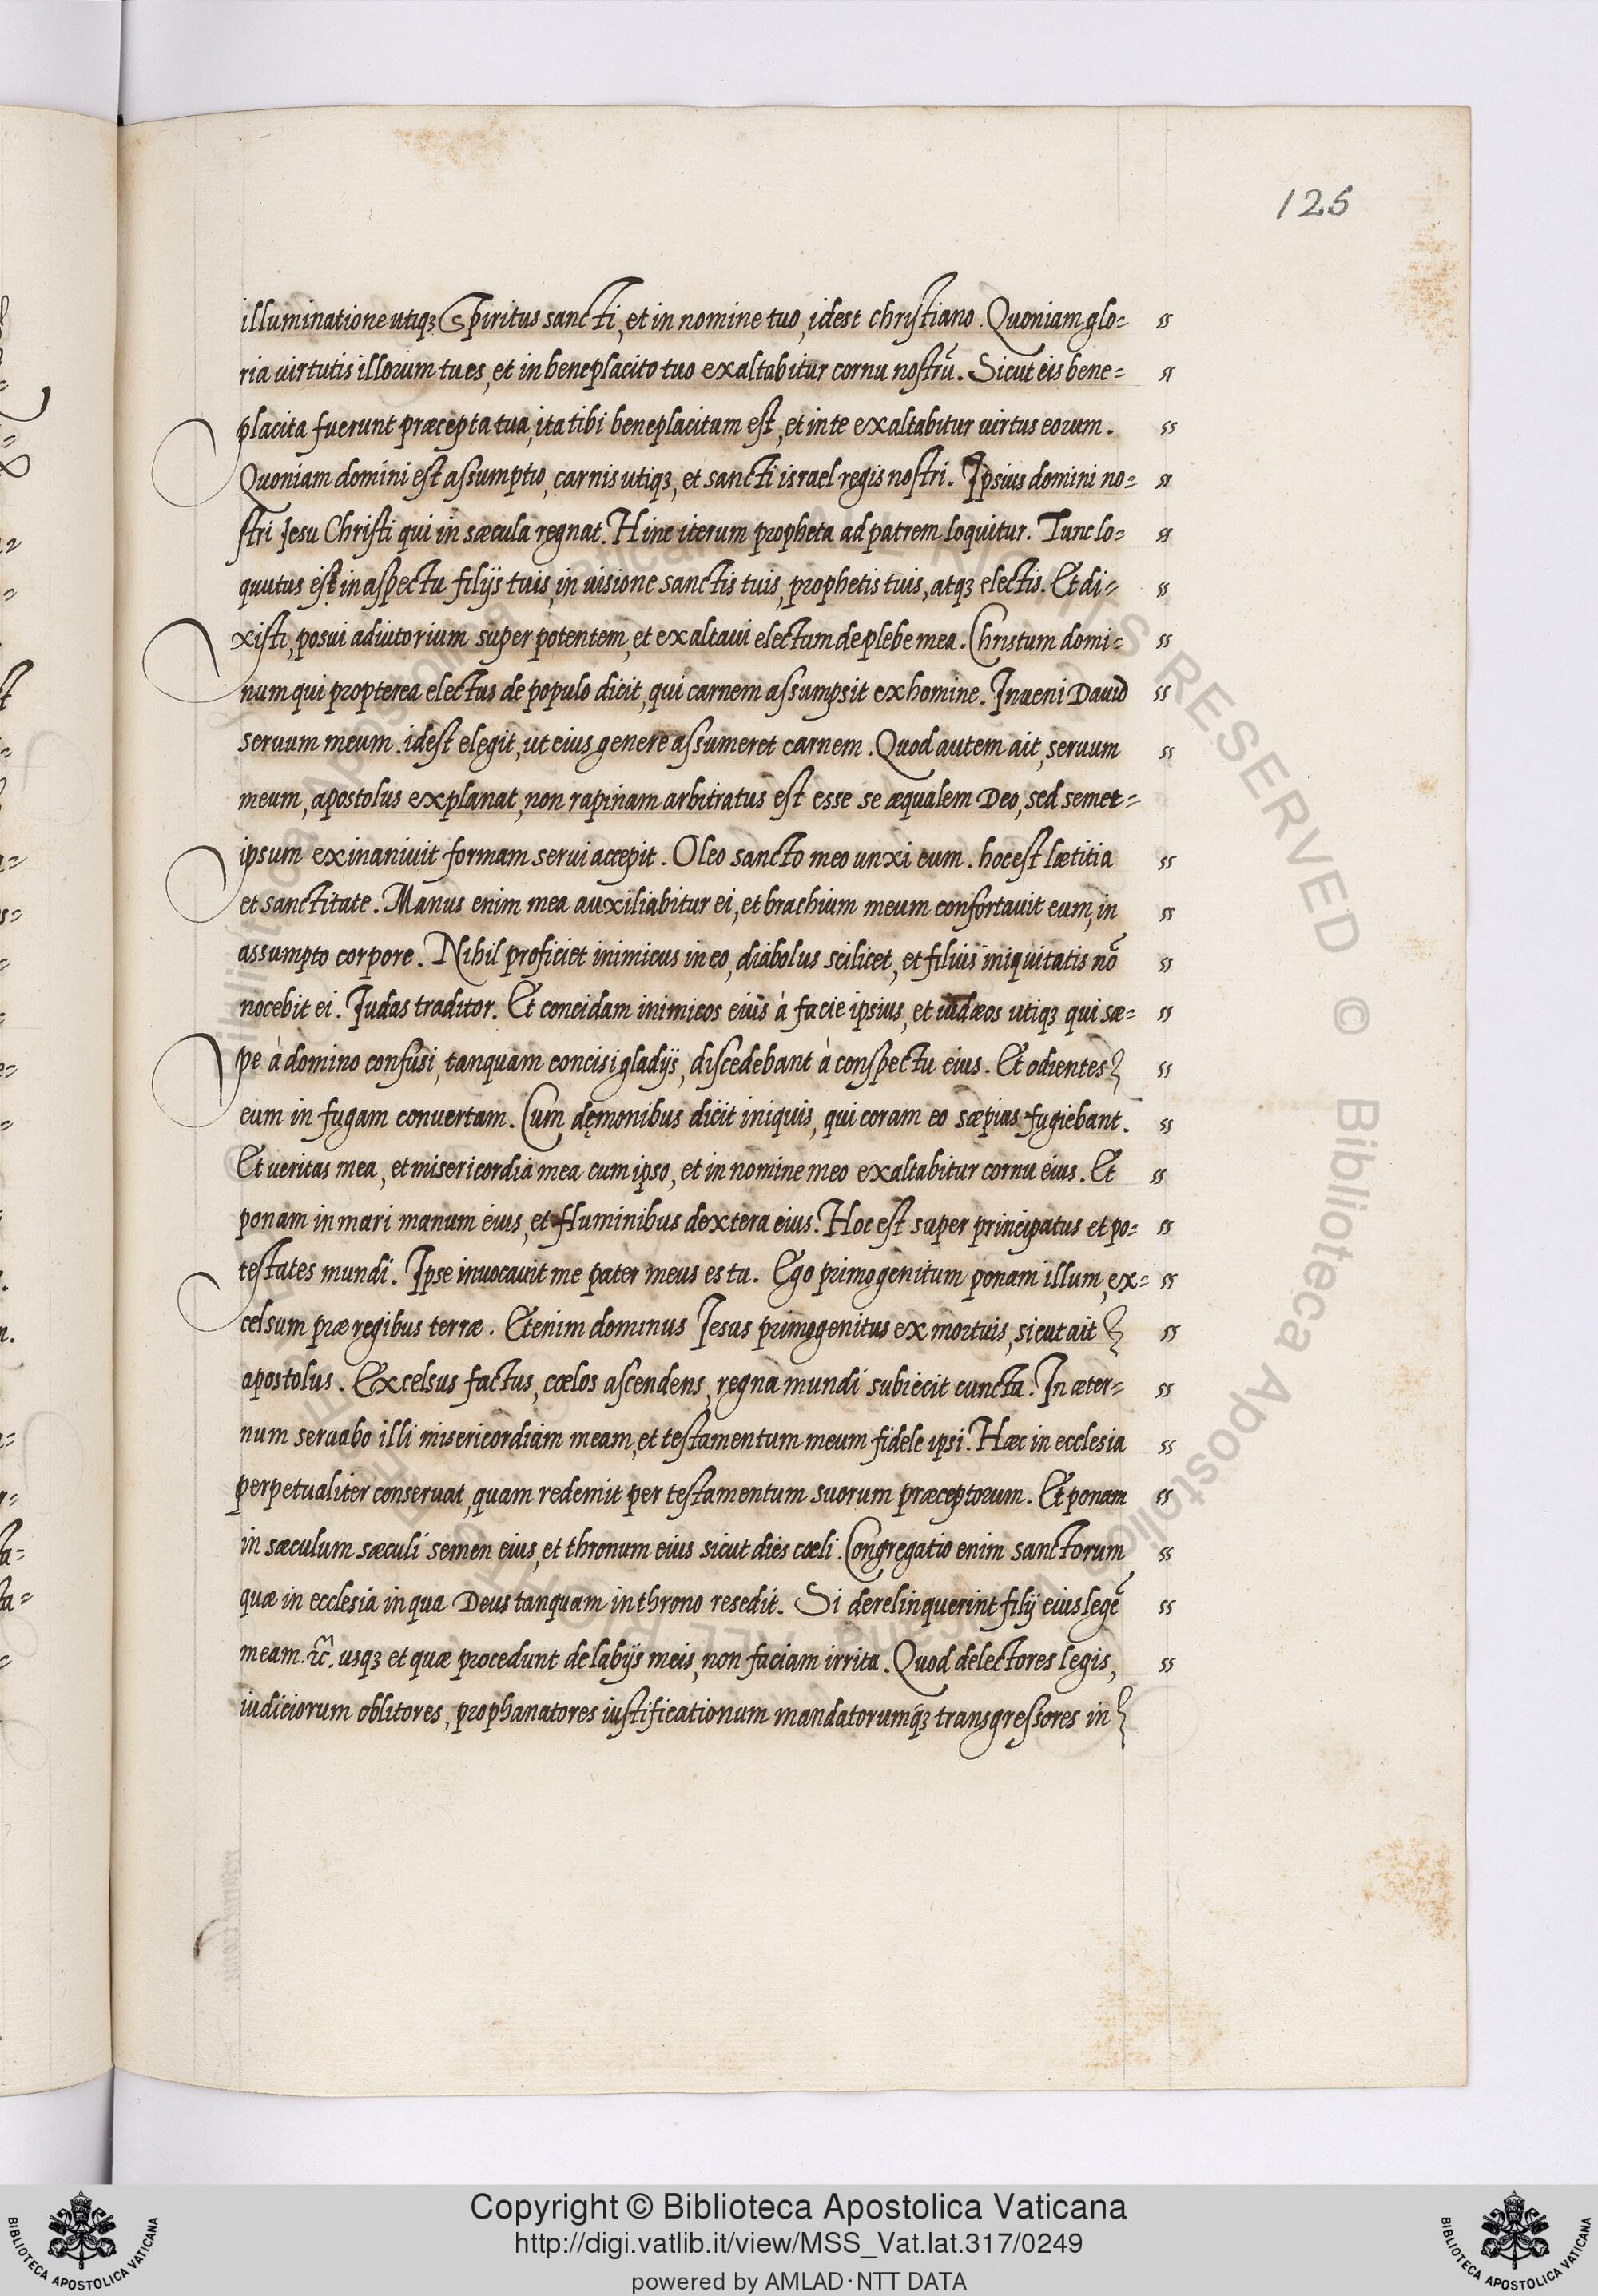 125
illuminatione utiqꝫ Spiritus sancti, et in nomine tuo, idest christiano. Quoniam glo= ss
ria uirtutis illorum tu es, et in beneplacito tuo exaltabitur cornu nostrū. Sicut eis bene= ss
placita fuerunt præcepta tua, ita tibi beneplacitum est, et in te exaltabitur uirtus eorum. ss
Quoniam domini est assumptio, carnis utiqꝫ, et sancti israel regis nostri. Ipsius domini no= ss
stri Jesu Christi qui in sæcula regnat. Hinc iterum propheta ad patrem loquitur. Tunc lo= ss
quutus est in aspectu filijs tuis, in uisione sanctis tuis, prophetis tuis, atqꝫ electis. Et di= ss
xisti, posui adiutorium super potentem, et exaltaui electum de plebe mea. Christum domi= ss
num qui propterea electus de populo dicit, qui carnem assumpsit ex homine. Inueni Dauid ss
seruum meum. idest elegit, ut eius genere assumeret carnem. Quod autem ait, seruum ss
meum, apostolus explanat, non rapinam arbitratus est esse se æqualem Deo, sed semet=
ipsum exinaniuit formam serui accepit. Oleo sancto meo unxi eum. hoc est lætitia ss
et sanctitate. Manus enim mea auxiliabitur ei, et brachium meum confortauit eum, in ss
assumpto corpore. Nihil proficiet inimicus in eo, diabolus scilicet, et filius iniquitatis nō ss
nocebit ei. Judas traditor. Et concidam inimicos eius à facie ipsius, et iudæos utiqꝫ qui sæ= ss
pe à domino confusi, tanquam concisi gladijs, discedebant à conspectu eius. Et odientes ss
eum in fugam conuertam. Cum dęmonibus dicit iniquis, qui coram eo sæpius fugiebant. ss
Et ueritas mea, et misericordia mea cum ipso, et in nomine meo exaltabitur cornu eius. Et ss
ponam in mari manum eius, et fluminibus dextera eius. Hoc est super principatus et po= ss
testates mundi. Ipse inuocauit me pater meus es tu. Ego primogenitum ponam illum, ex= ss
celsum præ regibus terræ. Etenim dominus Jesus primogenitus ex mortuis, sicut ait ss
apostolus. Excelsus factus, cœlos ascendens, regna mundi subiecit cuncta. In æter= ss
num seruabo illi misericordiam meam, et testamentum meum fidele ipsi. Hæc in ecclesia ss
perpetualiter conseruat, quam redemit per testamentum suorum præceptorum. Et ponam ss
in sæculum sæculi semen eius, et thronum eius sicut dies cœli. Congregatio enim sanctorum ss
quæ in ecclesia in qua Deus tanquam in throno resedit. Si derelinquerint filij eius legē ss
meam. ⁊c̃. usqꝫ et quæ procedunt de labijs meis, non faciam irrita. Quod delectores legis, ss
iudiciorum oblitores, prophanatores iustificationum mandatorumqꝫ transgressores in
Copyright © Biblioteca Apostolica Vaticana
http://digi.vatlib.it/view/MSS_Vat.lat.317/0249
powered by AMLAD·NTT DATA
BIBLIOTECA APOSTOLICA VATICANA
BIBLIOTECA APOSTOLICA VATICANA